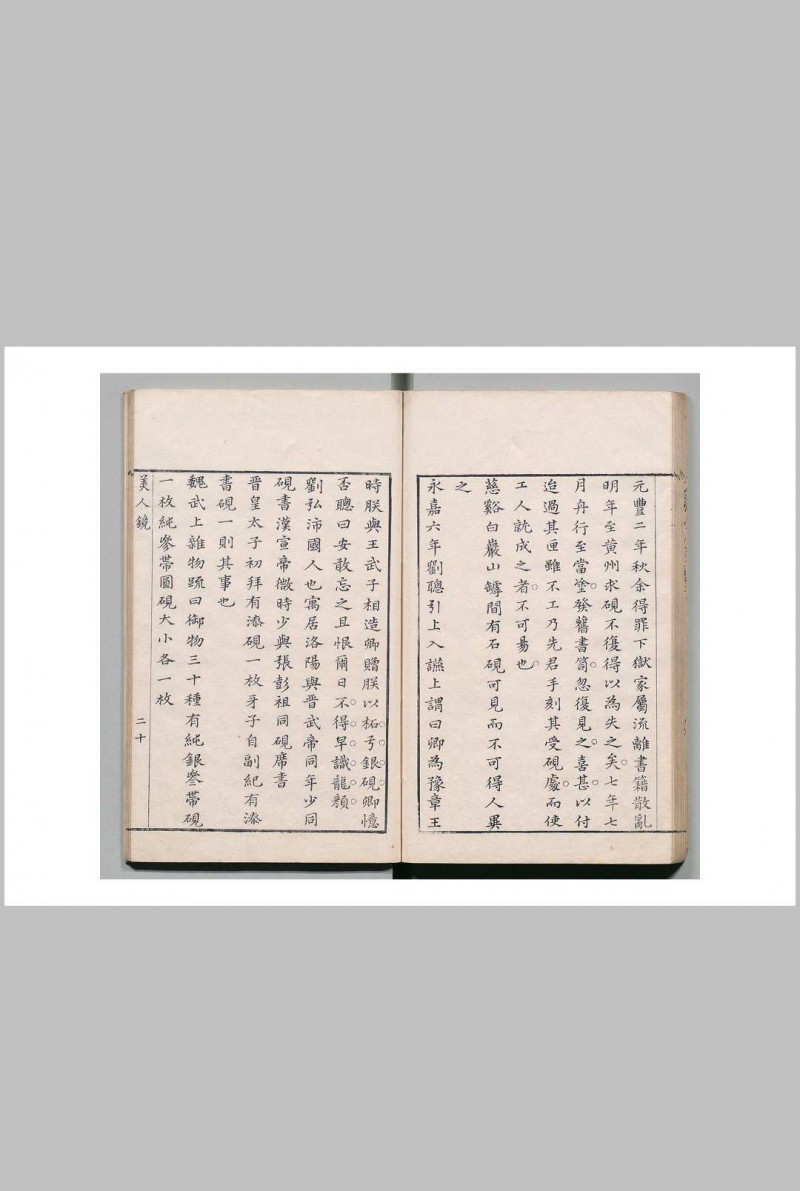 元豐二年秋余得罪下獄家屬流離書籍散亂
明年至黄州求硯不復得以為失之矣七年七
月舟行至當塗發舊書笥忽復見之喜甚以付
迨過其匣雖不工乃先君手刻其受硯處而使
工人就成之者不可易也
慈谿白巖山罅間有石硯可見而不可得人異
之
永嘉六年劉聰引上入讌上謂曰卿為豫章王
時朕與王武子相造卿贈朕以柘弓銀硯卿憶
否聰曰安敢忘之且恨爾日不得早識龍顏
劉弘沛國人也寓居洛陽與晉武帝同年少同
硯書漢宣帝微時少與張彭祖同硯席書
晉皇太子初拜有漆硯一枚牙子自副紀有漆
書硯一則其事也
魏武上雜物疏曰御物三十種有純銀叅帶硯
一枚純叅帶圓硯大小各一枚
美人鏡 二十